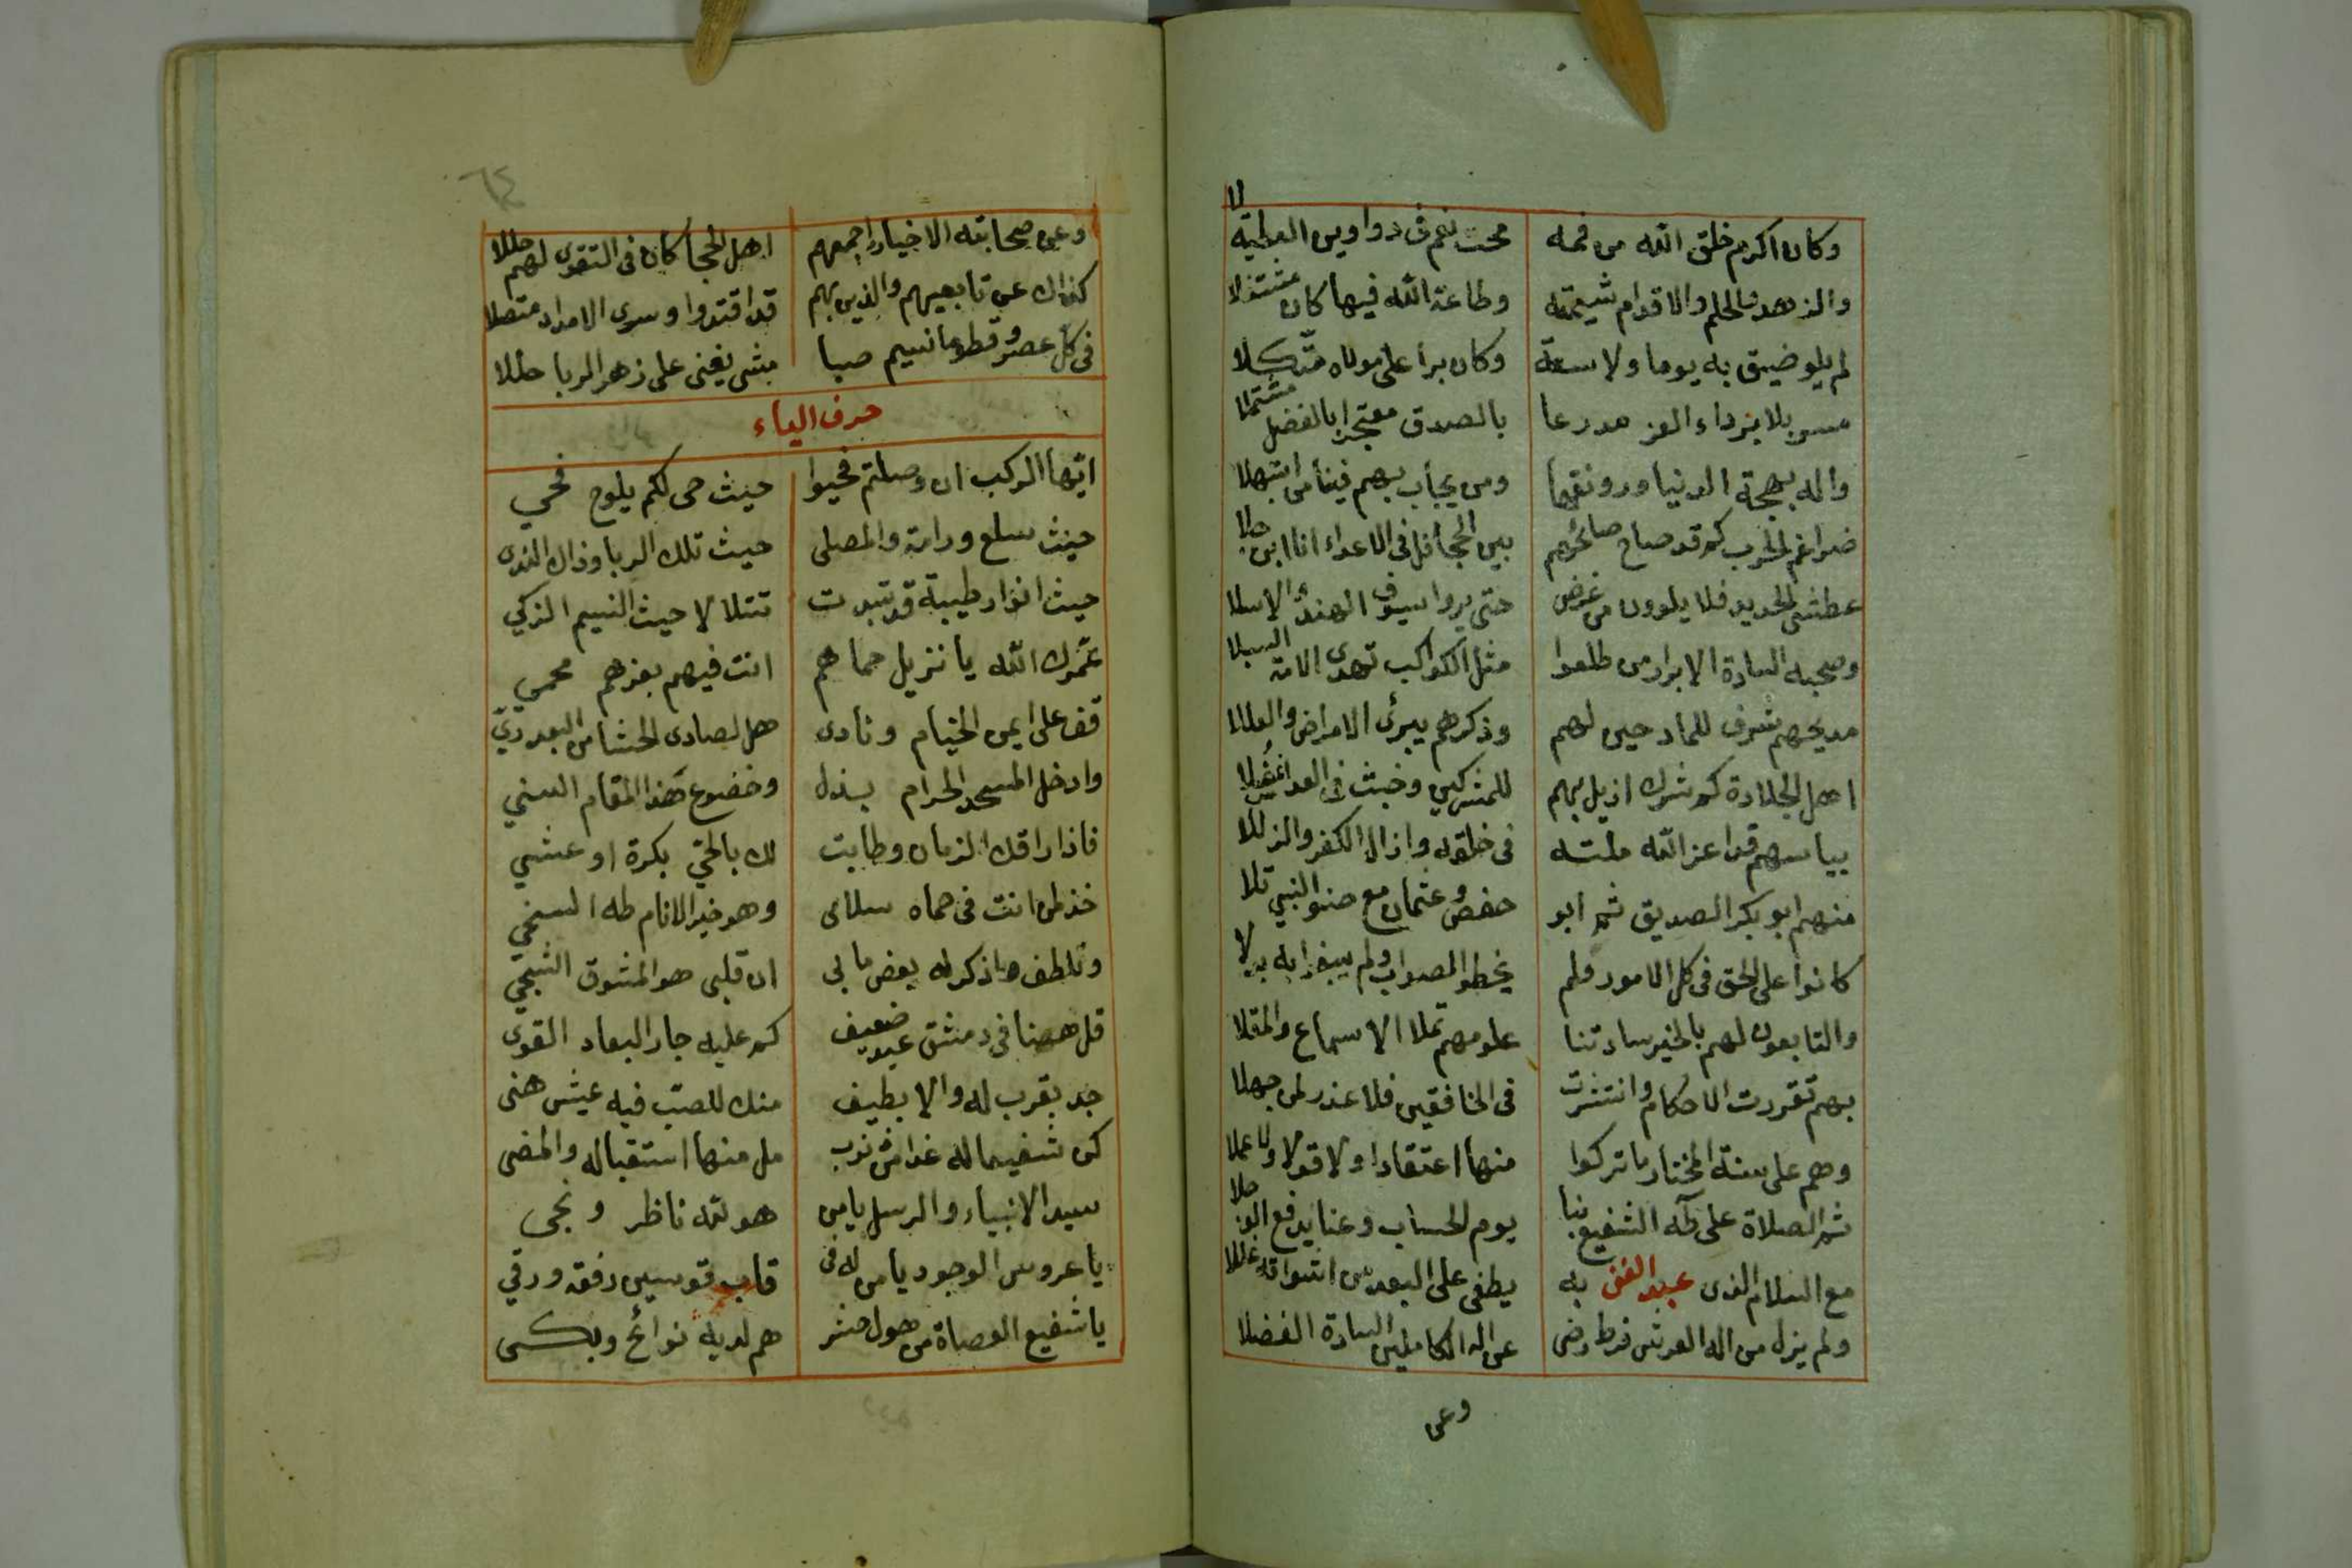 وكان اكرم خلق الله من فمه محت نعم في دواوين العطية لا
والزهد والحلم والاقدام شيمته وطاعة الله فيها كان مشتغلا
لم يلو ضيق به يوما ولا سعة وكان برا على مولاه متكلا
مسربلا برداء العز مدرعا بالصدق معتجرا بالفضل مشتملا
واله بهجة الدنيا ورونقها ومن يجاب بهم فينا من ابتهلا
ضراغم الحرب كم قد صاح صائحهم بين الجحافل في الاعداء انا ابن جلا
عطشى الحديد فلا يلوون من غرض حتى يروا سيوف الهند والاسلا
وصحبه السادة الابرار من طلعوا مثل الكواكب تهدى الامة السبلا
مديحهم شرف للمادحين لهم وذكرهم يبرئ الامراض والعللا
اهل الجلادة كم شرك ازيل بهم للمشركين وخبث في العدا
بباسهم قد اعز الله ملته في خلقه وازال الكفر والزللا
منهم ابو بكر الصديق ثم ابو حفص وعثمان مع صنو النبي تلا
كانوا على الحق في كل الامور فلم يخطوا الصواب ولم يبغوا به بدلا
والتابعون لهم بالخير سادتنا علومهم تملا الاسماع والمقلا
بهم تقررت الاحكام وانتشرت في الخافقين فلا عذر لمن جهلا
وهم على سنة المختار ما تركوا منها اعتقادا ولا قولا ولا عملا
ثم الصلاة على طه الشفيع بنا يوم الحساب وعنا يدفع الوجلا
مع السلام الذى عبد الغنى به يطفى على البعد من اشواقه غللا
ولم يزل من اله العرش فرط رضى عن اله الكاملين السادة الفضلا
وعن
٦٤
وعن صحابته الاخيار اجمعهم اهل الحجا كان فى التقوى لهم حللا
كذاك عن تابعيهم والذين بهم قد اقتدوا وسرى الامداد متصلا
في كل عصر وقطر ما نسيم صبا مشى يغنى على زهر الربا حللا
حرف الياء
ايها الركب ان وصلتم فحيوا حيث حى لكم يلوح فحي
حيث سلع ورامة والمصلى حيث تلك الربا وذاك الندى
حيث انوار طيبة قد تبدت تتلالا حيث النسيم الزكي
عمرك الله يا نزيل حماهم انت فيهم بعزهم محمي
قف على ايمن الخيام ونادى هل لصادى الحشا من البعد ريّ
وادخل المسجد الحرام بذل وخضوع لهذا المقام السني
فاذا راقك الزمان وطابت لك بالحيّ بكرة او عشي
خذ لمن انت فى حماه سلامى وهو خير الانام طه السخي
وتلطف واذكر له بعض ما بى ان قلبى هو المشوق الشجيّ
قل ههنا فى دمشق عبد ضعيف كم عليه جار البعاد القوى
جد بقرب له والا بطيف منك للصب فيه عيش هنى
كن شفيعا له غدا من ذنوب مل منها استقباله والمضى
سيد الانبياء والرسل يا من هو لله ناظر ونجى
يا عروس الوجود يا من له فى قاب قوسين رفقة ورقي
يا شفيع العصاة من هول حشر هم لديه نوائح وبكى